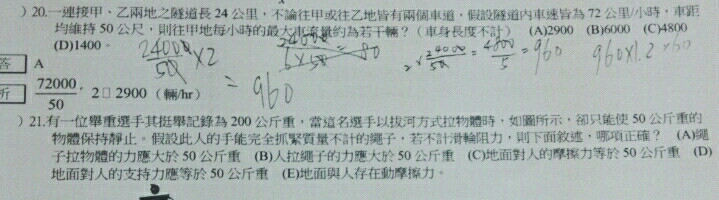 ) 20.一連接甲、乙兩地之隧道長 24 公里，不論往甲或往乙地皆有兩個車道，假設隧道內車速皆為 72 公里/小時，車距
均維持 50 公尺，則往甲地每小時的最大車流量約為若干輛？（車身長度不計） (A)2900 (B)6000 (C)4800
(D)1400。
24000/50 ×2
= 960
24000/5×50 = 80
2 × 24000/50 = 4800/5 = 960
960×1.2×60
答 A
析 72000/50 ‧ 2□2900 （輛/hr）
) 21.有一位舉重選手其挺舉記錄為 200 公斤重，當這名選手以拔河方式拉物體時，如圖所示，卻只能使 50 公斤重的
物體保持靜止。假設此人的手能完全抓緊質量不計的繩子，若不計滑輪阻力，則下面敘述，哪項正確？ (A)繩
子拉物體的力應大於 50 公斤重 (B)人拉繩子的力應大於 50 公斤重 (C)地面對人的摩擦力等於 50 公斤重 (D)
地面對人的支持力應等於 50 公斤重 (E)地面與人存在動摩擦力。